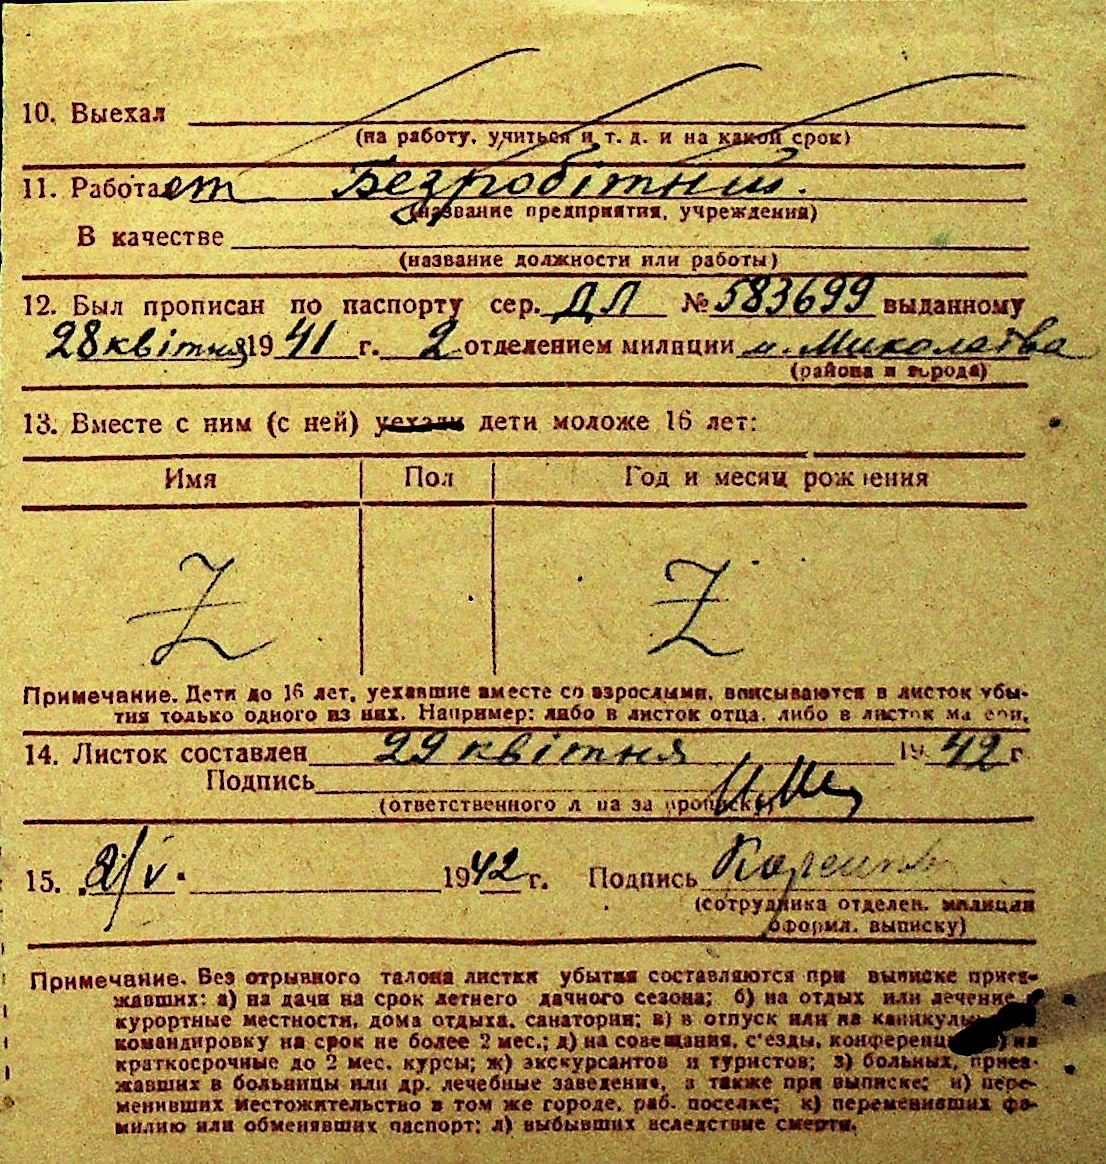 10. Выехал
(на работу, учиться и т. д. и на какой срок)
11. Работает Безробітний.
(название предприятия, учреждения)
В качестве
(название должности или работы)
12. Был прописан по паспорту сер. ДЛ № 583699 выданному
28 квітня 1941 г. 2 отделением милиции м. Миколаєва
(района и города)
13. Вместе с ним (с ней) уехали дети моложе 16 лет:
Имя Пол Год и месяц рождения
Z Z
Примечание. Дети до 16 лет, уехавшие вместе со взрослыми, вписываются в листок убы-
тия только одного из них. Например: либо в листок отца, либо в листок матери.
14. Листок составлен 29 квітня 1942 г
Подпись
(ответственного лица за прописку)
15. 2/V. 1942 г. Подпись
(сотрудника отделен. милиции
оформл. выписку)
Примечание. Без отрывного талона листки убытия составляются при выписке приез-
жавших: а) на дачи на срок летнего дачного сезона; б) на отдых или лечение
курортные местности, дома отдыха, санатории; в) в отпуск или на каникулы
командировку на срок не более 2 мес.; д) на совещания, с'езды, конференц на
краткосрочные до 2 мес. курсы; ж) экскурсантов и туристов; з) больных, приез-
жавших в больницы или др. лечебные заведения, а также при выписке; и) пере-
менивших местожительство в том же городе, раб. поселке; к) переменивших фа-
милию или обменявших паспорт; л) выбывших вследствие смерти.